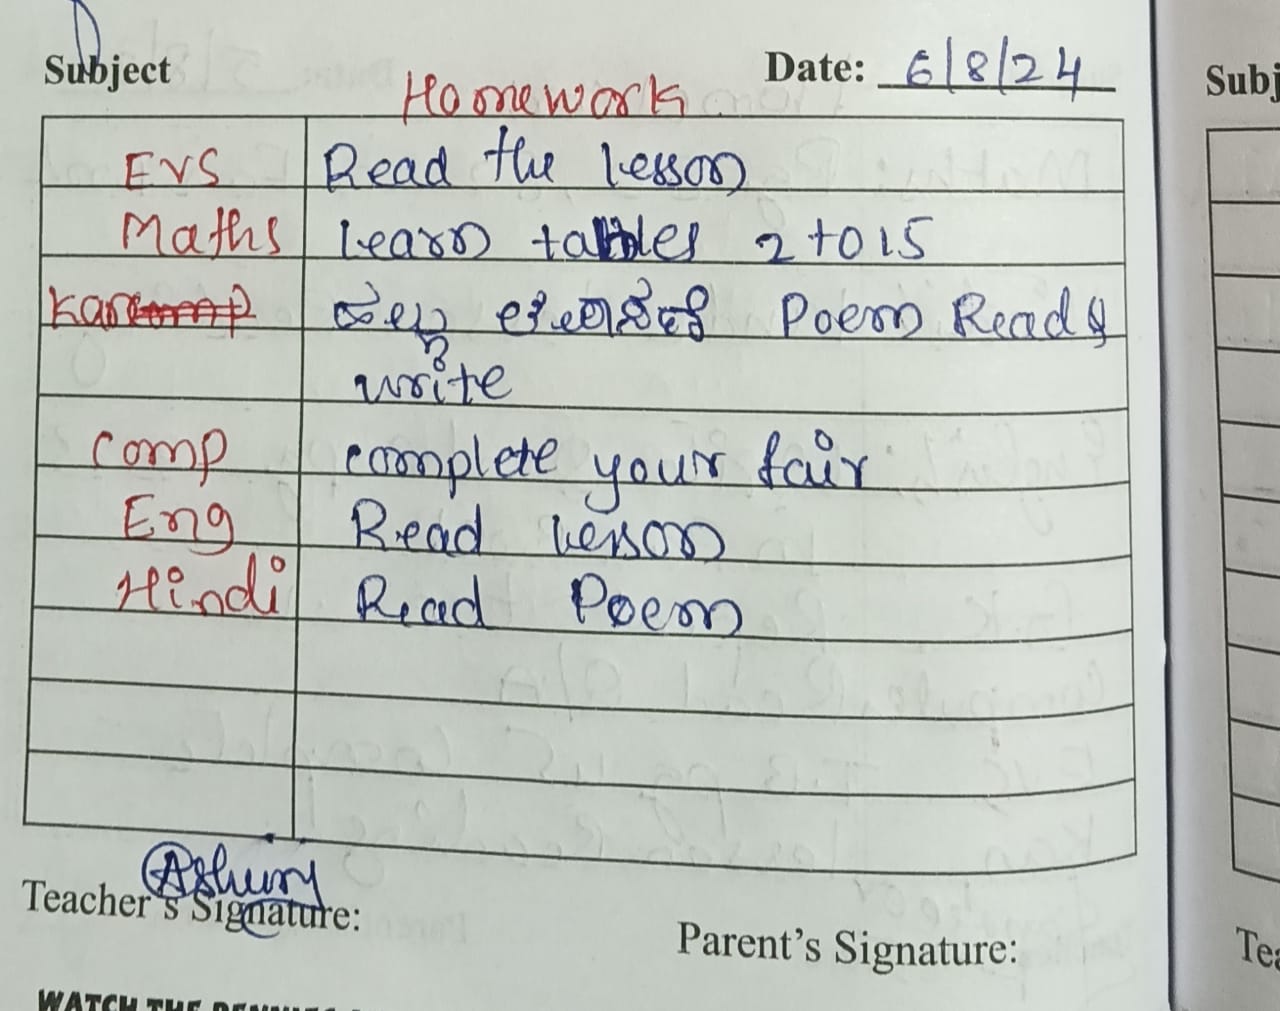 Subject Date: 6/8/24 Subj
Homework
EVS Read the lesson
Maths Learn tables 2 to 15
Kan Poem Read &
write
Comp complete your fair
Eng Read lesson
Hindi Read Poem
Teacher's Signature: Tea
Parent's Signature:
WATCH THE